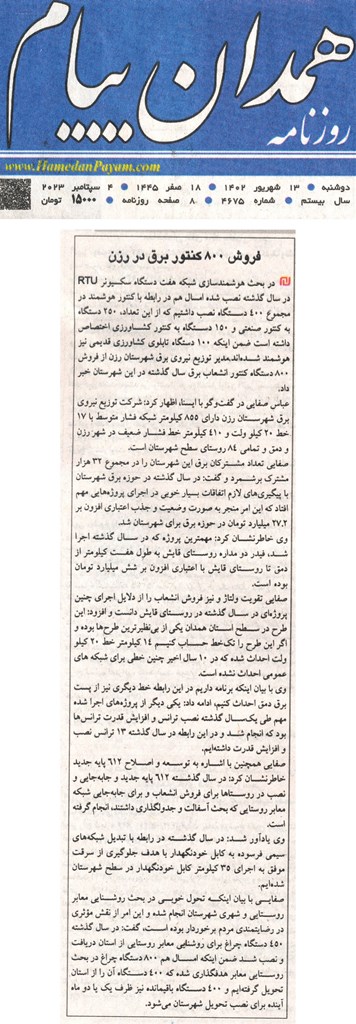 روزنامه
همدان پیام
www.HamedanPayam.com
دوشنبه ● ۱۳ شهریور ۱۴۰۲ ● ۱۸ صفر ۱۴۴۵ ● ۴ سپتامبر ۲۰۲۳
سال بیستم ● شماره ۴۶۷۵ ● ۸ صفحه روزنامه ● ۱۵۰۰۰ تومان
فروش ۸۰۰ کنتور برق در رزن
در بحث هوشمندسازی شبکه هفت دستگاه سکسیونر RTU
در سال گذشته نصب شده امسال هم در رابطه با کنتور هوشمند در
مجموع ۴۰۰ دستگاه نصب داشتیم که از این تعداد، ۲۵۰ دستگاه
به کنتور صنعتی و ۱۵۰ دستگاه به کنتور کشاورزی اختصاص
داشته است ضمن اینکه ۱۰۰ دستگاه تابلوی کشاورزی قدیمی نیز
هوشمند شده‌اند.مدیر توزیع نیروی برق شهرستان رزن از فروش
۸۰۰ دستگاه کنتور انشعاب برق سال گذشته در این شهرستان خبر
داد.
عباس صفایی در گفت‌وگو با ایسنا، اظهار کرد: شرکت توزیع نیروی
برق شهرستان رزن دارای ۸۵۵ کیلومتر شبکه فشار متوسط با ۱۷
خط ۲۰ کیلو ولت و ۴۱۰ کیلومتر خط فشار ضعیف در شهر رزن
و دمق و تمامی ۸۴ روستای سطح شهرستان است.
صفایی تعداد مشترکان برق این شهرستان را در مجموع ۳۲ هزار
مشترک برشمرد و گفت: در سال گذشته در حوزه برق شهرستان
با پیگیری‌های لازم اتفاقات بسیار خوبی در اجرای پروژه‌هایی مهم
افتاد که این امر منجر به صورت وضعیت و جذب اعتباری افزون بر
۲۷.۲ میلیارد تومان در حوزه برق برای شهرستان شد.
وی خاطرنشان کرد: مهمترین پروژه که در سال گذشته اجرا
شد، فیدر دو مداره روستای قایش به طول هفت کیلومتر از
دمق تا روستای قایش با اعتباری افزون بر شش میلیارد تومان
بوده است.
صفایی تقویت ولتاژ و نیز فروش انشعاب را از دلایل اجرای چنین
پروژه‌ای در سال گذشته در روستای قایش دانست و افزود: این
طرح در سطح استان همدان یکی از بی‌نظیرترین طرح‌ها بوده و
اگر این طرح را تک‌خط حساب کنیم ۱۴ کیلومتر خط ۲۰ کیلو
ولت احداث شده که در ۱۰ سال اخیر چنین خطی برای شبکه های
عمومی احداث نشده است.
وی با بیان اینکه برنامه داریم در این رابطه خط دیگری نیز از پست
برق دمق احداث کنیم، ادامه داد: یکی دیگر از پروژه‌های اجرا شده
مهم طی یک‌سال گذشته نصب ترانس و افزایش قدرت ترانس‌ها
بود که انجام شد و در این رابطه در سال گذشته ۱۳ ترانس نصب
و افزایش قدرت داشته‌ایم.
صفایی همچنین با اشاره به توسعه و اصلاح ۶۱۲ پایه جدید
خاطرنشان کرد: در سال گذشته ۶۱۲ پایه جدید و جابه‌جایی و
نصب در روستاها برای فروش انشعاب و برای جابه‌جایی شبکه
معابر روستایی که بحث آسفالت و جدولگذاری داشتند، انجام گرفته
است.
وی یادآور شد: در سال گذشته در رابطه با تبدیل شبکه‌های
سیمی فرسوده به کابل خودنگهدار با هدف جلوگیری از سرقت
موفق به اجرای ۳۵ کیلومتر کابل خودنگهدار در سطح شهرستان
شده‌ایم.
صفایی با بیان اینکه تحول خوبی در بحث روشنایی معابر
روستایی و شهری شهرستان انجام شده و این امر از نقش مؤثری
در رضایتمندی مردم برخوردار بوده است، گفت: در سال گذشته
۴۵۰ دستگاه چراغ برای روشنایی معابر روستایی از استان دریافت
و نصب شد ضمن اینکه امسال هم ۸۰۰ دستگاه چراغ در بحث
روستایی معابر هدفگذاری شده که ۴۰۰ دستگاه آن را از استان
تحویل گرفته‌ایم و ۴۰۰ دستگاه باقیمانده نیز ظرف یک یا دو ماه
آینده برای نصب تحویل شهرستان می‌شود.